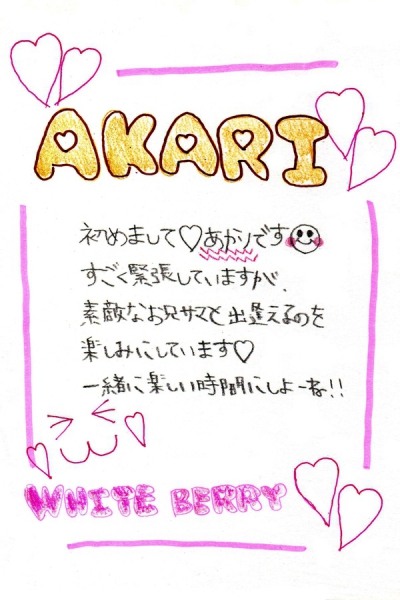 AKARI
初めまして♡あかりです
すごく緊張していますが、
素敵なお兄サマと出逢えるのを
楽しみにしています♡
一緒に楽しい時間にしよーね!!
WHITE BERRY